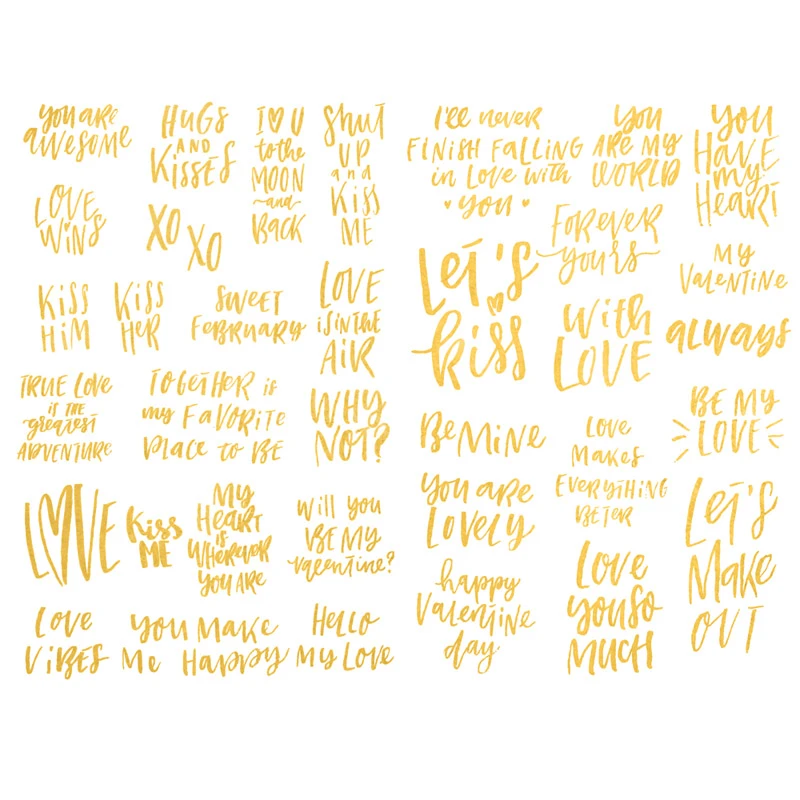 you are
awesome
HUGS
AND
KISSES
I ♡ U
to the
MOON
~and~
BACK
Shut
UP
and
KISS
ME
LOVE
WINS
XO
XO
KISS
HIM
KISS
HER
SWEET
FEBRUARY
LOVE
is in the
AIR
TRUE LOVE
is the
greatest
ADVENTURE
TOGETHER is
my FAVORITE
place to BE
WHY
NOT?
LOVE
Kiss
ME
MY
HEART
is
WHEREVER
YOU ARE
Will you
BE MY
valentine?
LOVE
VIBES
YOU MAKE
Me HAPPY
HELLO
MY LOVE
I'll never
FINISH FALLING
in Love with
you
YOU
ARE MY
WORLD
YOU
HAVE
my
HEART
FOREVER
yours
Let's
kiss
MY
VALENTINE
With
LOVE
always
BE MINE
LOVE
MAKES
EVERYTHING
BETER
BE MY
LOVE
YOU ARE
LOVELY
happy
Valentine
day
Love
you so
MUCH
LET'S
MAKE
OUT